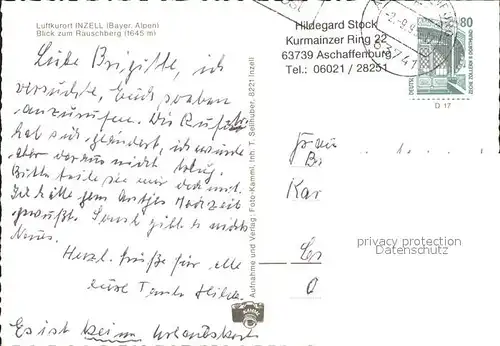 Luftkurort INZELL (Bayer. Alpen)
Blick zum Rauschberg (1645 m)
Liebe Brigitte, ich
versuchte, Euch soeben
anzurufen. Die Ruf
hat sich geändert, ich wurde
aber daraus nicht klug.
Bitte teile sie mir doch mit.
Ich hätte gern Antjes Hochzeit
gewußt. Sonst gibt es nichts
Neues.
Herzl. Grüße für alle
eure Tante Hilde.
Es ist keine Urlaubskarte
Aufnahme und Verlag: Foto-Kamml, Inh. T. Sellhuber, 8221 Inzell
KAMML
Hildegard Stock
Kurmainzer Ring 22
63739 Aschaffenburg
Tel.: 06021 / 28251
63741
80
DEUTSCHE
ZECHE ZOLLERN II DORTMUND
D 17
Frau
Br
Kar
privacy protection
Datenschutz